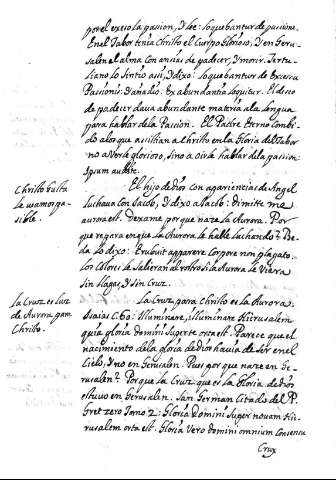 por el exeso la pasion, Y dise: loquebantur de pasione.
En el Tabor tenia Christo el Cuerpo Glorioso, Y en Geru-
salen el alma con ansias de padecer, Y morir. Tertu-
liano lo sintio assi, Y dixo: loquebantur de Excessu
Passionis: Y anadio. Ex abundantia loquitur. El deseo
de padecer dava abundante materia ala lengua
para hablar de la Passion. El Padre Eterno Combi-
do alos que assistian a Christo en la Gloria del Tabor
no a Verle glorioso, sino a oirle hablar dela passion
Ipsum audite.
El hijo de dios con apariencias de Angel
Luchava con Jacob, Y dixo a Jacob: dimitte me
aurora est. Dexame, porque naze la Aurora. Por
que repara en que la Aurora le halle luchando? Be-
da lo dixo: Erubuit apparere Corpore non plagato.
los Colores le Salieran al rostro si la Aurora le Viera
sin llagas, Y sin Cruz.
Christo
sible.
La Cruz, para Christo es la Aurora.
Isaias C. 60: Illuminare, illuminare Hierusalem
quia gloria Domini super te orta est. Parece que el
nacimiento dela gloria de dios havia de ser en el
Cielo, Y no en Gerusalen. Pues por que naze en Ge-
rusalen? Porque la Cruz que es la Gloria de dios
estuvo en Gerusalen. San German Citado del P.
Gretzero Tomo 2: Gloria Domini super novam Hie-
rusalem orta est. Gloria Vero Domini omnium
Crux
La Cruz es luz
de Aurora para
Christo.